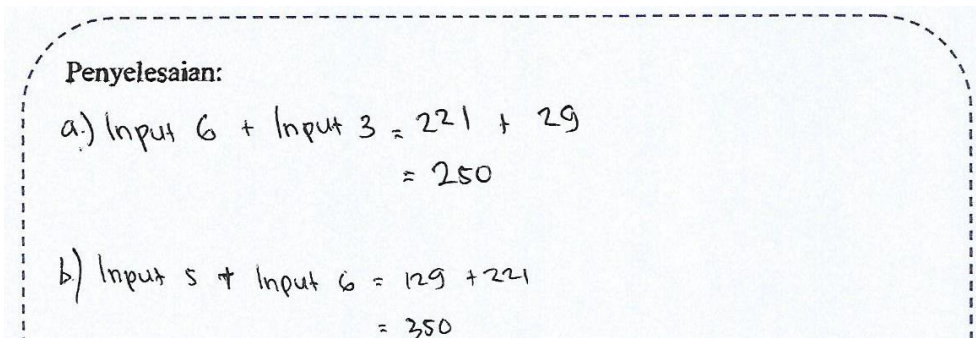 Penyelesaian:
a.) Input 6 + Input 3 = 221 + 29
= 250
b.) Input 5 + Input 6 = 129 + 221
= 350